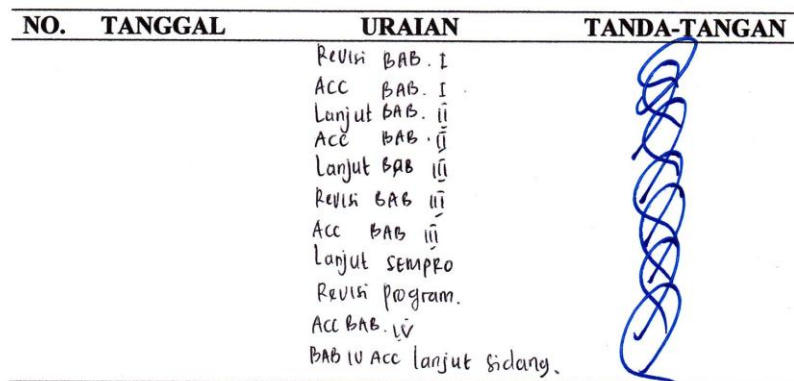 NO. TANGGAL URAIAN TANDA-TANGAN
Revisi BAB. I
ACC BAB. I
Lanjut BAB. II
ACC BAB. II
Lanjut BAB III
Revisi BAB III
ACC BAB III
Lanjut SEMPRO
Revisi program.
ACC BAB. IV
BAB IV ACC lanjut sidang.